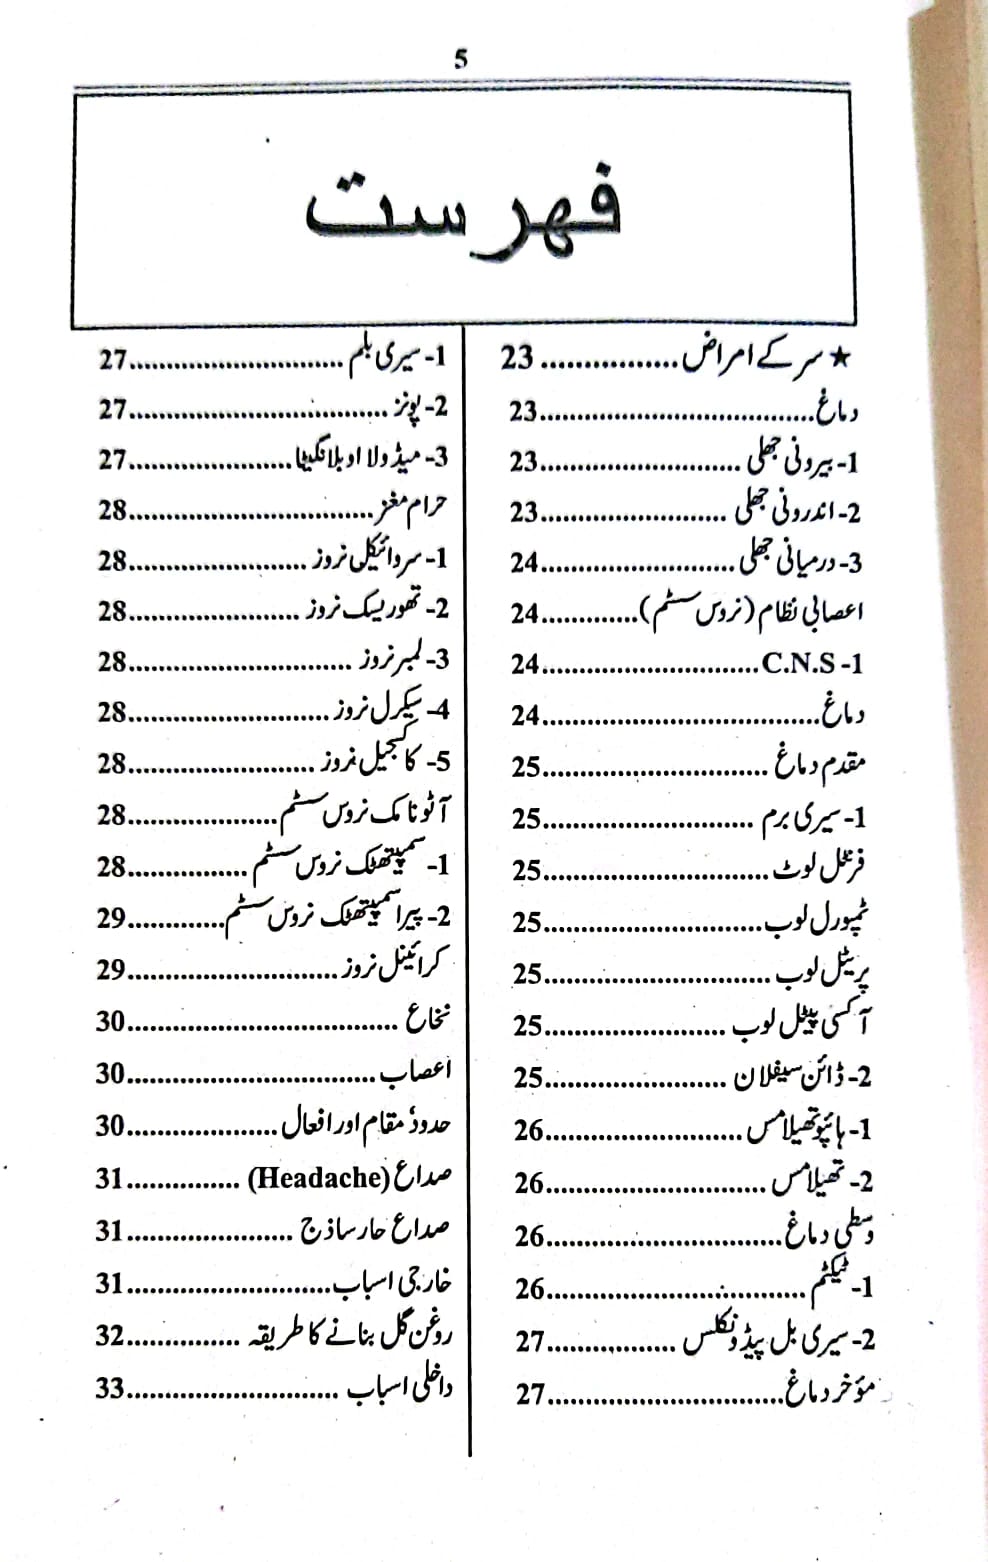 5
فہرست
★ سر کے امراض ............... 23
دماغ..................................... 23
1- بیرونی جھلی ........................... 23
2- اندرونی جھلی ......................... 23
3- درمیانی جھلی .......................... 24
اعصابی نظام (نروس سسٹم) ............. 24
C.N.S -1............................. 24
دماغ..................................... 24
مقدم دماغ .............................. 25
1- سیری برم ............................ 25
فرنٹل لوٹ .............................. 25
ٹمپورل لوب............................. 25
پریٹل لوب .............................. 25
آکسی پیٹل لوب ........................ 25
2- ڈائن سیفلان ........................ 25
1- ہائپوتھیلامس .......................... 26
2- تھیلامس .............................. 26
وسطی دماغ............................... 26
1- ٹیکٹم .................................. 26
2- سیری بل پیڈونکلس ................. 27
مؤخر دماغ............................... 27
1- سیری بلم ............................. 27
2- پونز ................................... 27
3- میڈولا اوبلانگیٹا ...................... 27
حرام مغز ................................. 28
1- سروائیکل نروز ....................... 28
2- تھوریسک نروز ....................... 28
3- لمبر نروز .............................. 28
4- سیکرل نروز ........................... 28
5- کاکسجیل نروز ......................... 28
آٹونامک نروس سسٹم .................... 28
1- سمپیتھٹک نروس سسٹم ................ 28
2- پیراسمپیتھٹک نروس سسٹم ............. 29
کرائینل نروز ............................. 29
نخاع .................................... 30
اعصاب................................. 30
حدود' مقام اور افعال .................... 30
صداع (Headache) ............... 31
صداع حار ساذج ...................... 31
خارجی اسباب........................... 31
روغن گل بنانے کا طریقہ ............... 32
داخلی اسباب ............................ 33